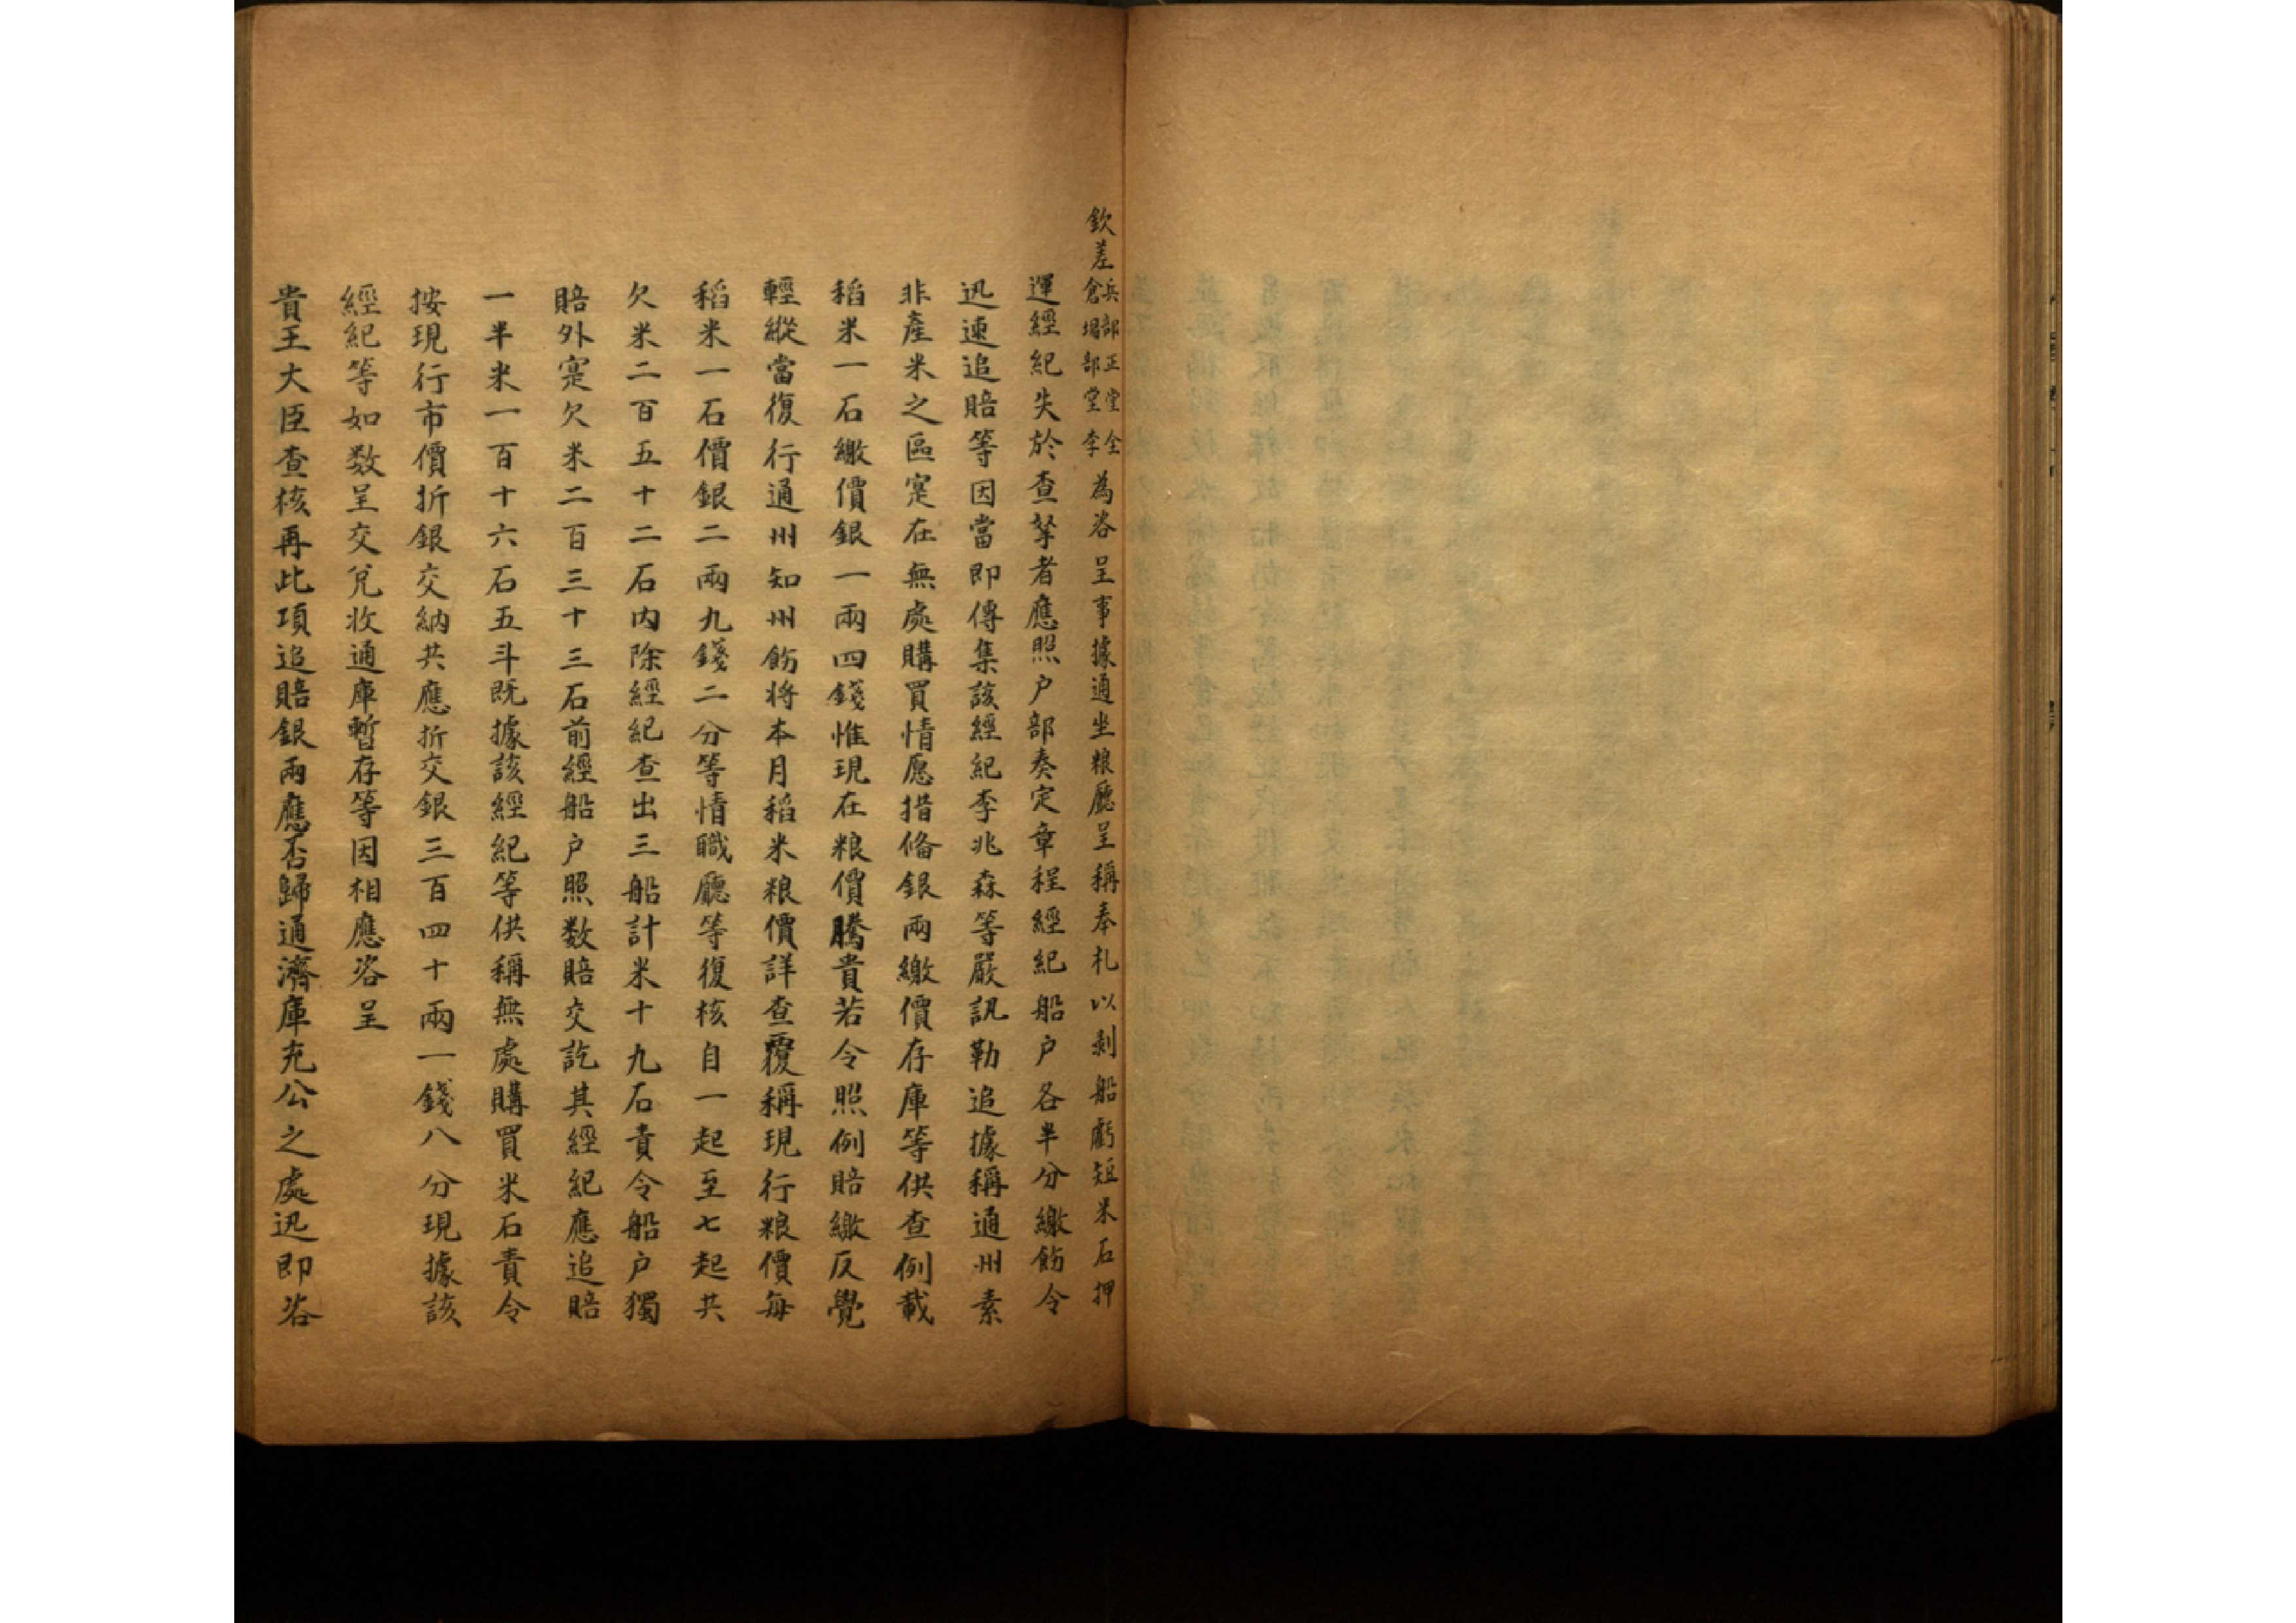 欽差兵部正堂全倉場部堂李為咨呈事據通坐粮廳呈稱奉札以剥船虧短米石押
運經紀失於查拏者應照户部奏定章程經紀船户各半分繳飭令
迅速追賠等因當即傳集該經紀李兆森等嚴訊勒追據稱通州素
非產米之區寔在無處購買情愿措俻銀兩繳價存庫等供查例載
稻米一石繳價銀一兩四錢惟現在粮價騰貴若令照例賠繳反覺
輕縱當復行通州知州飭将本月稻米粮價詳查覆稱現行粮價每
稻米一石價銀二兩九錢二分等情職廳等復核自一起至七起共
欠米二百五十二石内除經紀查出三船計米十九石責令船户獨
賠外寔欠米二百三十三石前經船户照数賠交訖其經紀應追賠
一半米一百十六石五斗既據該經紀等供稱無處購買米石責令
按現行市價折銀交納共應折交銀三百四十兩一錢八分現據該
經紀等如数呈交兌收通庫暫存等因相應咨呈
貴王大臣查核再此項追賠銀兩應否歸通濟庫充公之處迅即咨